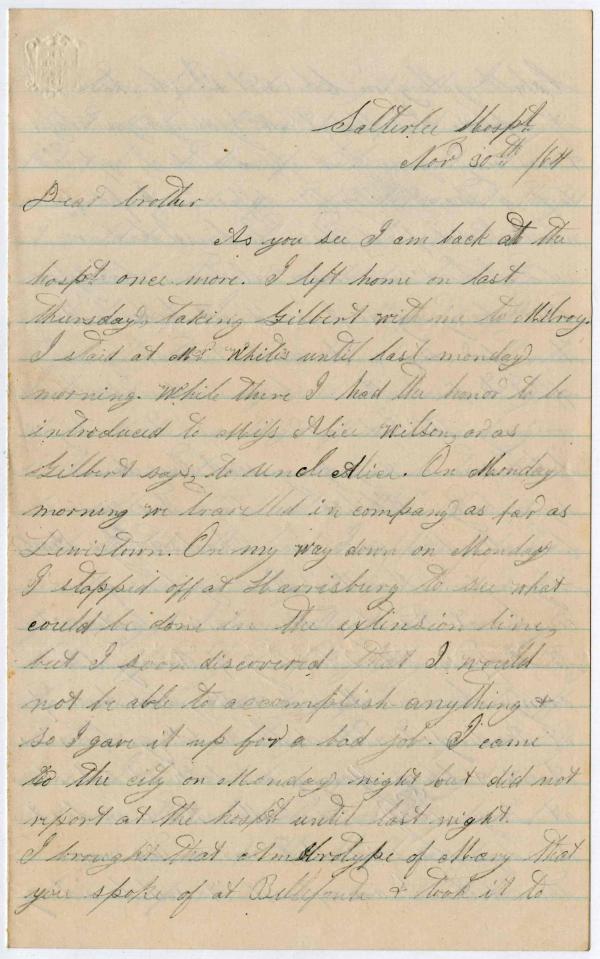 Satterlee Hospt.
Nov 30th /64
Dear brother
As you see I am back at the
hospt. once more. I left home on last
thursday, taking Gilbert with me to Milroy.
I staid at Mr Whites until last monday
morning. While there I had the honor to be
introduced to Miss Alice Wilson, or as
Gilbert says, to Uncle Alice. On Monday
morning we travelled in company as far as
Lewistown. On my way down on Monday
I stopped off at Harrisburg to see what
could be done in the extension line,
but I soon discovered that I would
not be able to accomplish anything &
so I gave it up for a bad job. I came
to the city on Monday night but did not
report at the hospt until last night.
I brought that Ambrotype of Mary that
you spoke of at Bellefonte & took it to